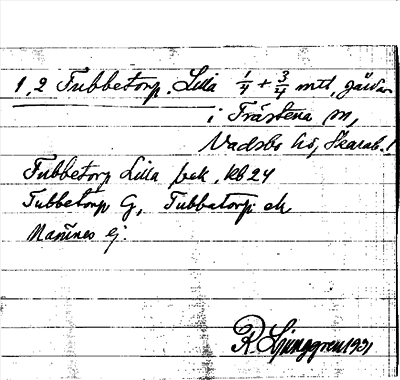 1, 2 Tubbetorp. Lilla 1/4 + 3/4 mtl, gårdar
i Trästena sn,
Vadsbo hd, Skarab. l
Tubbetorp Lilla jbk, kb 24
Tubbetorp G, Tubbatorp ek
Namnes ej.
R Ljunggren 1931